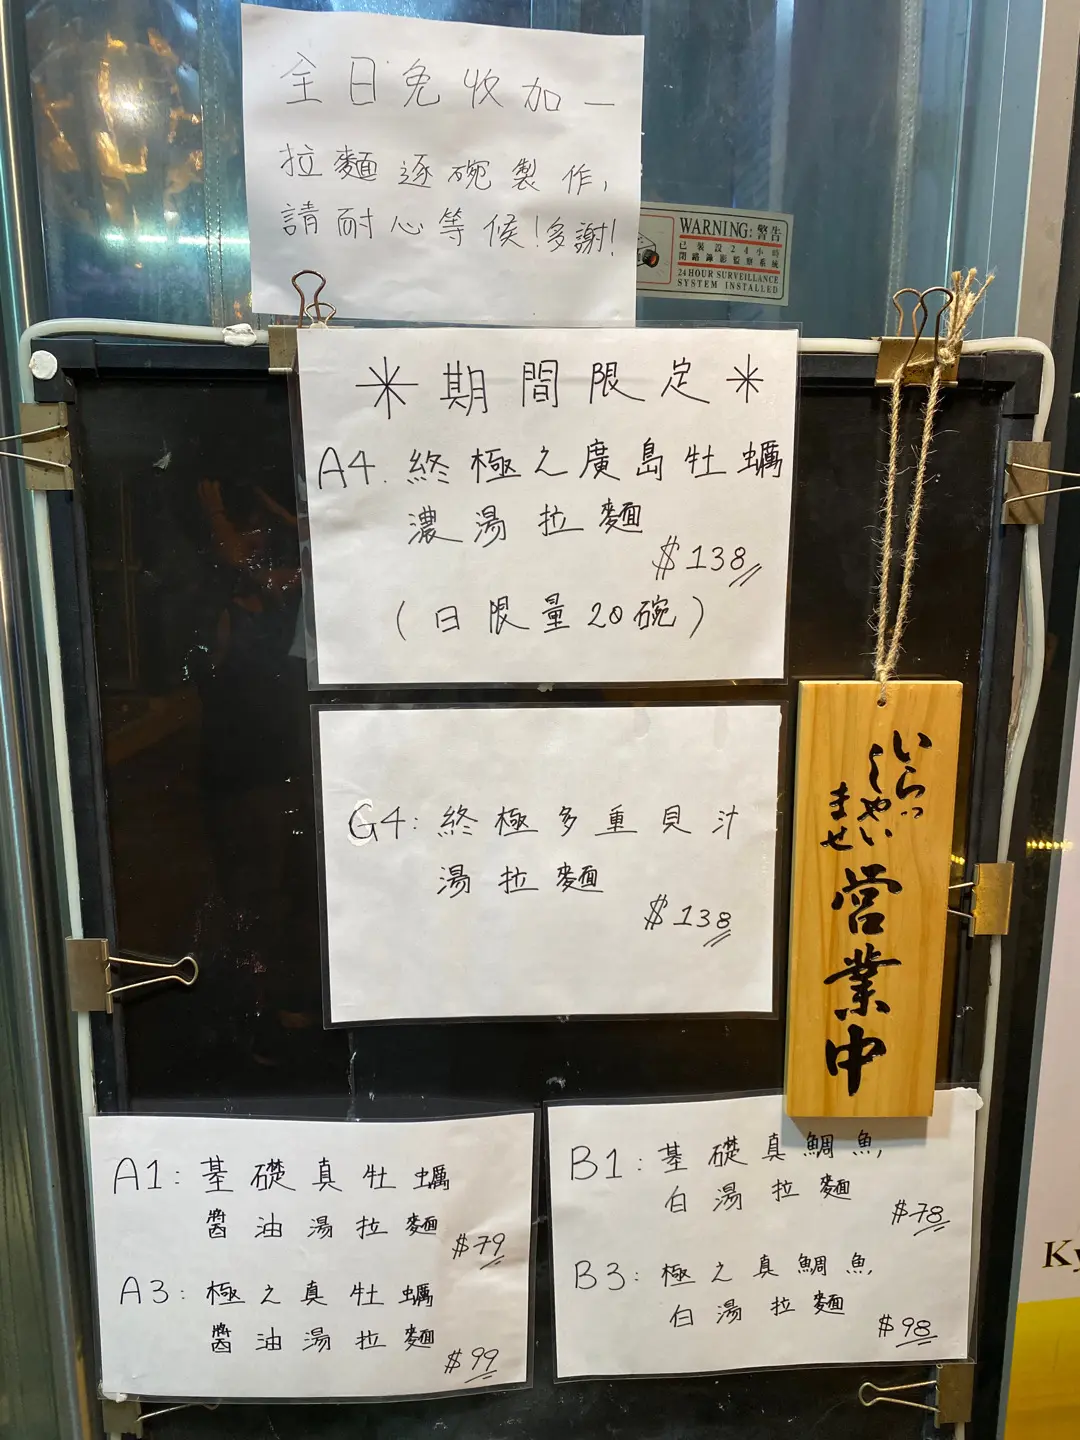 全日免收加一
拉麵逐碗製作,
請耐心等候!多謝!
WARNING: 警告
已裝設24小時
閉路錄影監察系統
24 HOUR SURVEILLANCE
SYSTEM INSTALLED
*期間限定*
A4. 終極之廣島牡蠣
濃湯拉麵
$138
(日限量20碗)
G4: 終極多重貝汁
湯拉麵
$138
いらっ
しゃい
ませ
営業中
A1: 基礎真牡蠣
醬油湯拉麵
$79
A3: 極之真牡蠣
醬油湯拉麵
$99
B1: 基礎真鯛魚,
白湯拉麵
$78
B3: 極之真鯛魚,
白湯拉麵
$98
Ky